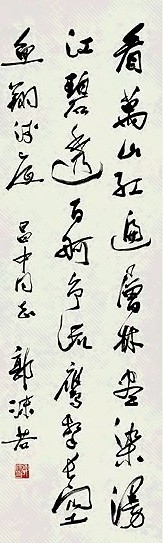 看萬山紅遍層林盡染漫
江碧透百舸爭流鷹擊長空
魚翔淺底 昌中同志 郭沫若